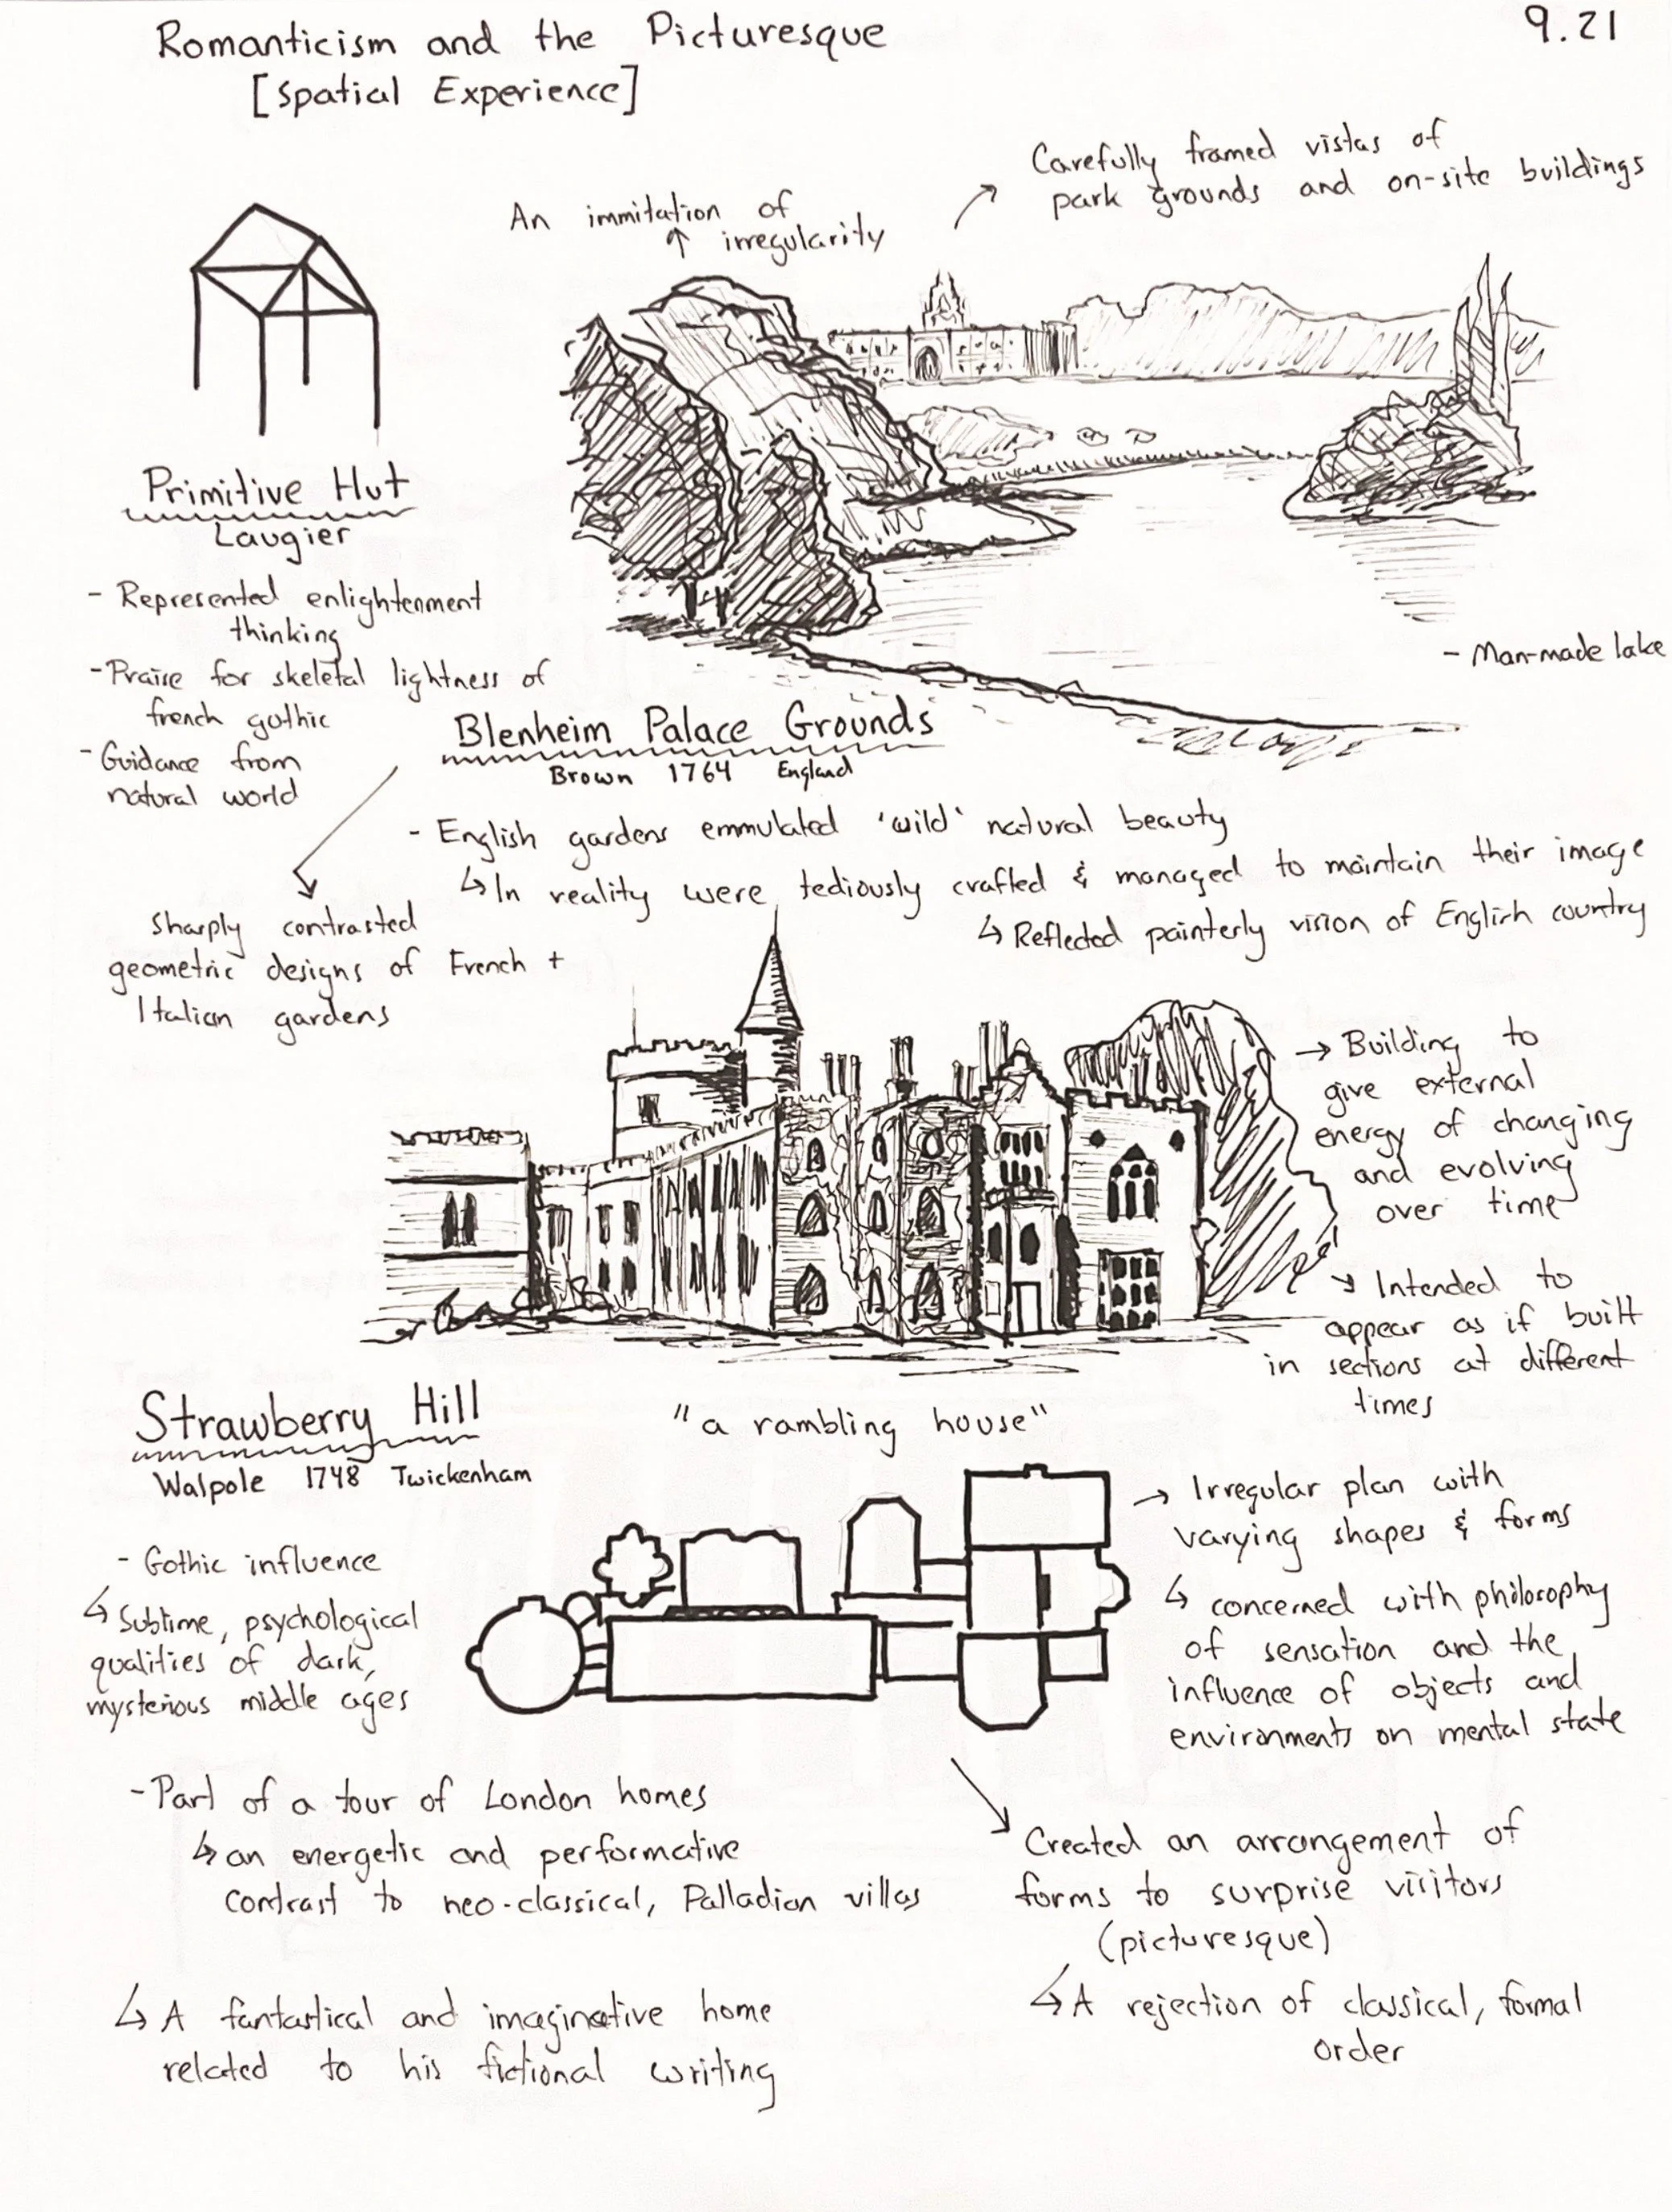 Romanticism and the Picturesque
9.21
[Spatial Experience]
An immitation of
↑ irregularity
↗ Carefully framed vistas of
park grounds and on-site buildings
Primitive Hut
Laugier
- Represented enlightenment
thinking
- Praise for skeletal lightness of
french gothic
- Guidance from
natural world
- Man-made lake
Blenheim Palace Grounds
Brown 1764 England
- English gardens emmulated 'wild' natural beauty
↳ In reality were tediously crafted & managed to maintain their image
↳ Reflected painterly vision of English country
Sharply contrasted
geometric designs of French +
Italian gardens
→ Building to
give external
energy of changing
and evolving
over time
↘ Intended to
appear as if built
in sections at different
times
Strawberry Hill
Walpole 1748 Twickenham
"a rambling house"
- Gothic influence
↳ Sublime, psychological
qualities of dark,
mysterious middle ages
→ Irregular plan with
varying shapes & forms
↳ concerned with philosophy
of sensation and the
influence of objects and
environments on mental state
- Part of a tour of London homes
↳ an energetic and performative
contrast to neo-classical, Palladian villas
↳ A fantastical and imaginative home
related to his fictional writing
Created an arrangement of
forms to surprise visitors
(picturesque)
↳ A rejection of classical, formal
order